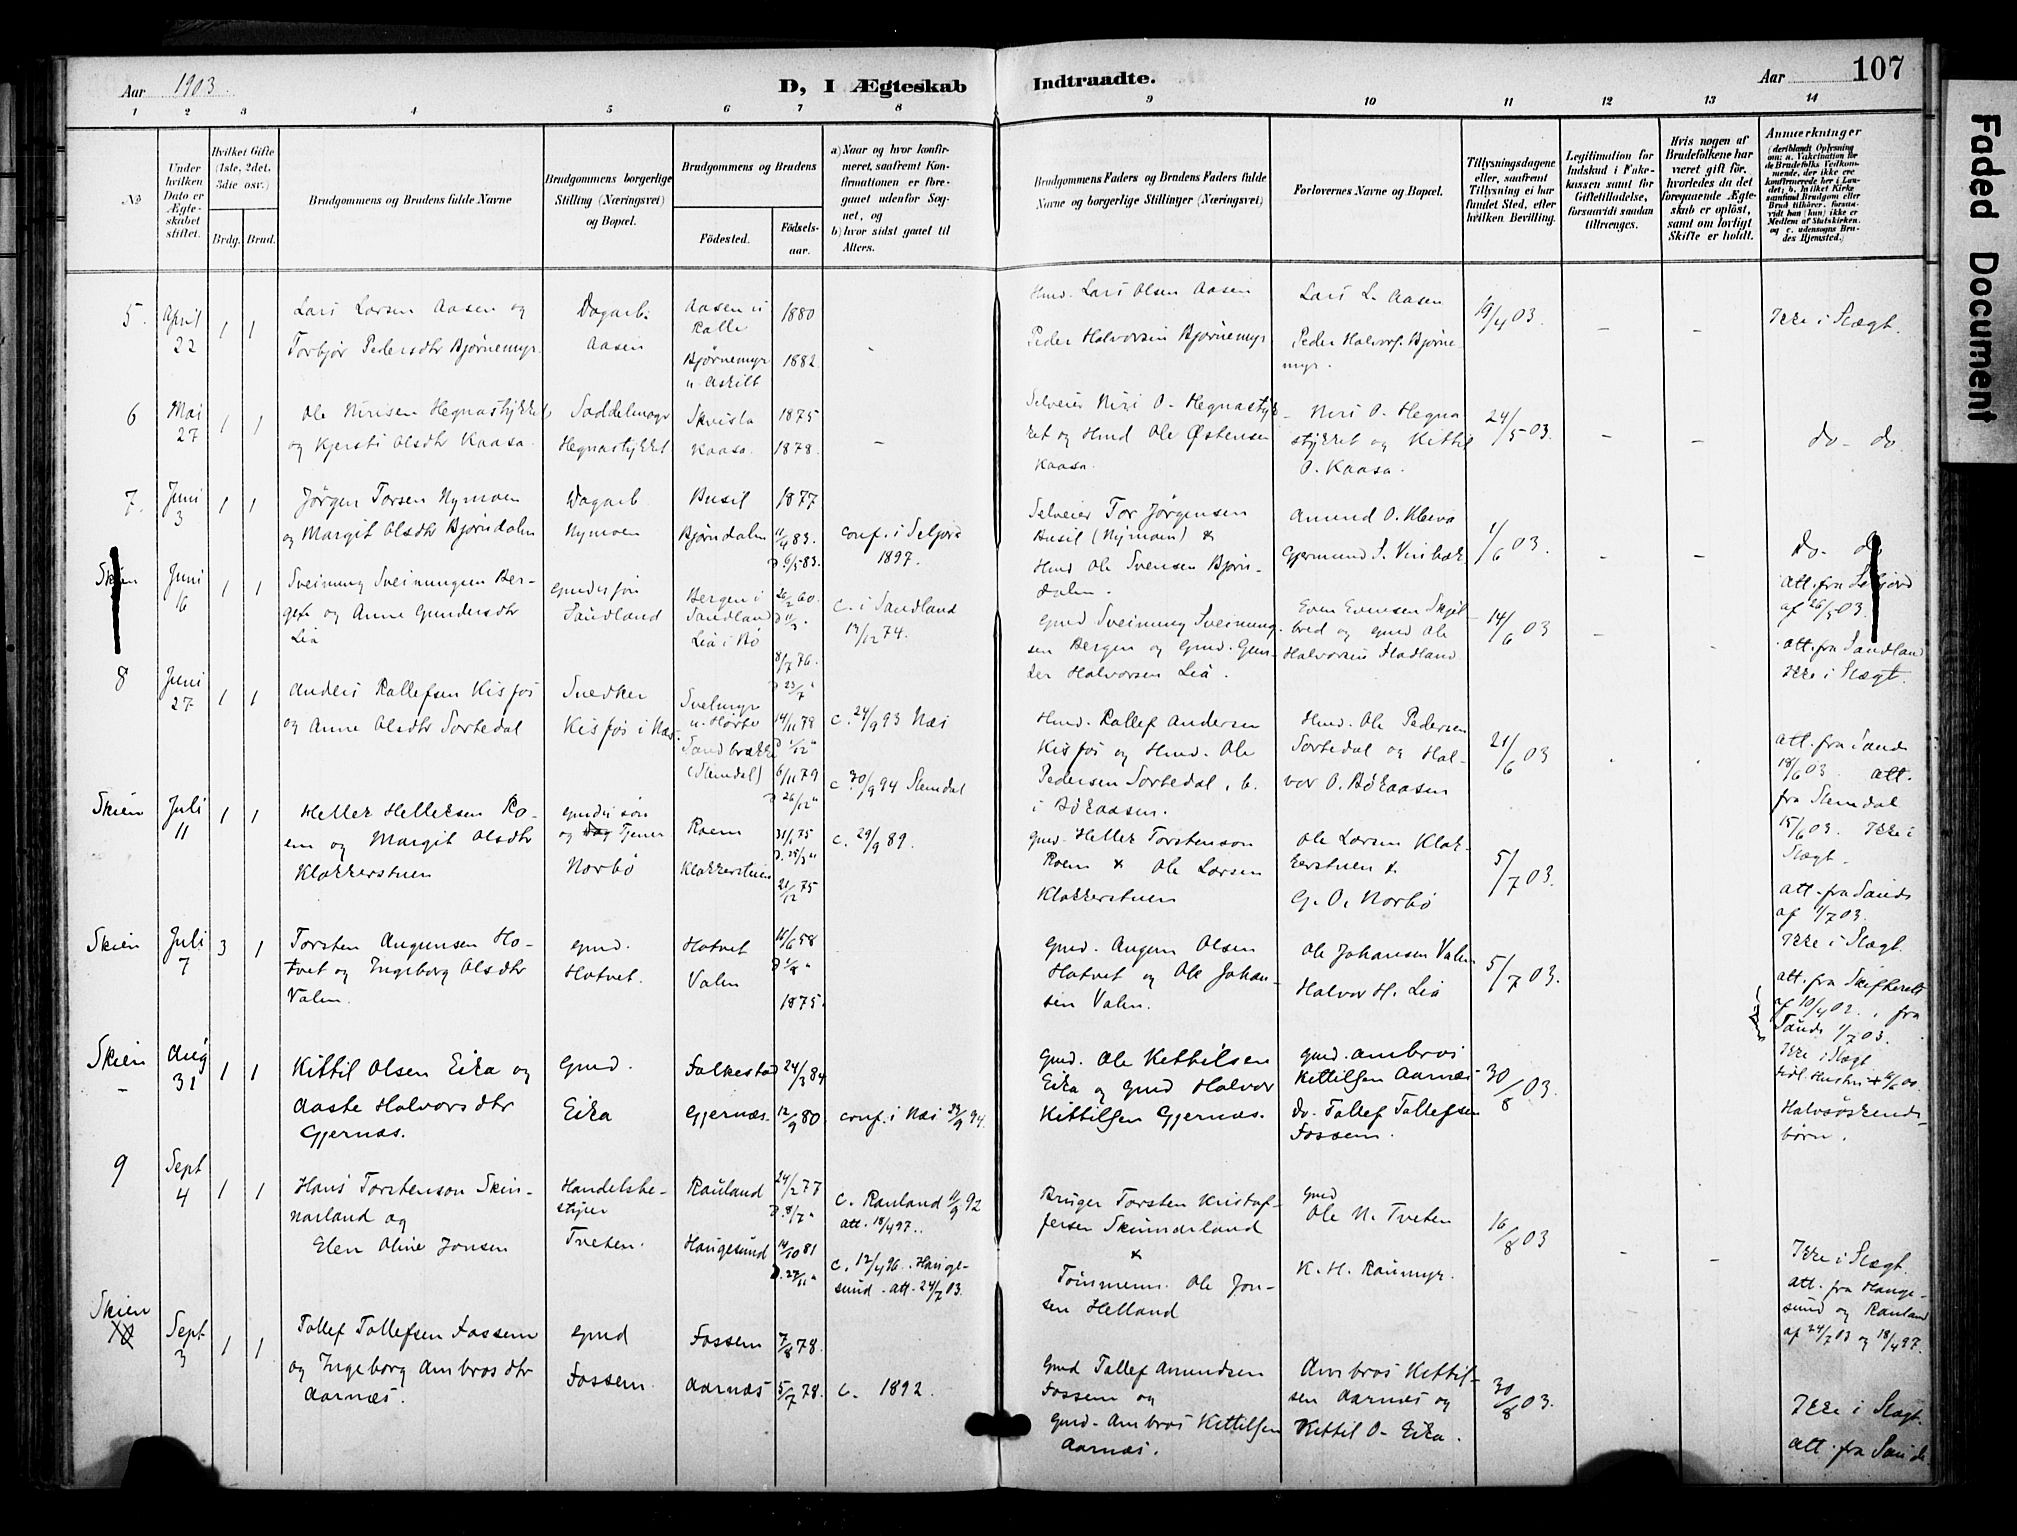 Aar 1903.
D, I Ægteskab
Indtraadte.
Aar 107
1 2 3 4 5 6 7 8 9 10 11 12 13 14
№
Under hvilken Dato er Ægteskabet stiftet.
Hvilket Gifte (1ste, 2det, 3die osv.)
Brdg. Brud.
Brudgommens og Brudens fulde Navne
Brudgommens borgerlige Stilling (Næringsvei) og Bopæl.
Brudgommens og Brudens
Fødested.
Fødselsaar.
a) Naar og hvor konfirmeret, saafremt Konfirmationen er foregaaet udenfor Sognet, og
b) hvor sidst gaaet til Alters.
Brudgommens Faders og Brudens Faders fulde Navne og borgerlige Stillinger (Næringsvei)
Forlovernes Navne og Bopæl.
Tillysningsdagene eller, saafremt Tillysning ei har fundet Sted, efter hvilken Bevilling.
Legitimation for Indskud i Enkekassen samt for Giftetilladelse, forsaavidt saadan tiltrænges.
Hvis nogen af Brudefolkene har været gift før, hvorledes da det foregaaende Ægteskab er opløst, samt om lovligt Skifte er holdt.
Anmerkninger
5. April 22 1 1
Lars Larsen Aasen og
Torbjør Pedersdtr Bjørnemyr.
Dagarb.
Aasen
Aasen u
Kalle
Bjørnemyr
u. Askilt
1880
1882
Hmd. Lars Olsen Aasen
Peder Halvorsen Bjørnemyr
Lars L. Aasen
Peder Halvors. Bjørne-
myr.
19/4 03.
Ikke i Slægt.
6 Mai 27 1 1
Ole Nirisen Hegnastykket
og Kjersti Olsdtr Kaasa.
Saddelmager
Hegnastykket
Skvisla
Kaasa.
1875
1878.
Selveier Niri O. Hegnastyk-
ket og Hmd Ole Østensen
Kaasa.
Niri O. Hegna
stykket og Kittil
O. Kaasa.
24/5 03.
do - do
7. Juni 3 1 1
Jørgen Torsen Nymoen
og Margit Olsdtr Bjørndalen
Dagarb.
Nymoen
Busil
Bjørndalen
1877
11/4 83.
D. 6/5 83.
conf. i Seljord
1897.
Selveier Tor Jørgensen
Busil (Nymoen) &
Hmd Ole Svensen Bjørn-
dalen.
Amund O. Kleiva
Gjermund S. Vinibæk
1/6 03.
Do - do
att. fra Seljord
af 26/5 03.
Skien Juni 16 1 1
Sveinung Sveinungsen Ber-
gen og Anne Gundersdtr
Lia
gmdssøn
Sandland
Bergen i
Sandland
Lia i Bø
26/2 60.
8/7 76.
D 23/7 "
c. i Sandland
13/12 74.
gmd Sveinung Sveinung-
sen Bergen og gmd. Gun-
der Halvorsen Lia.
Even Evensen Skjel-
bred og gmd Ole
Halvorsen Stadland
14/6 03
att. fra Sandland
Ikke i Slægt.
8 Juni 27 1 1
Anders Rollefsen Kisfos
og Anne Olsdtr Sortedal
Snedker
Kisfos i Næs.
Svelmyr
u. Hørte
Sandbrække
(Slemdal)
14/11 78
D 1/12 "
6/11 79
D 26/12 "
c. 24/9 93 Næs
c. 30/9 94 Slemdal
Hmd. Rollef Andersen
Kisfos og Hmd. Ole
Pedersen Sortedal, b.
i Bøkaasen.
Hmd. Ole Pedersen
Sortedal og Hal-
vor O. Bøkaasen
21/6 03
att. fra Sands
18/6 03. att.
fra Slemdal
15/6 03. Ikke i
Slægt.
Skien Juli 11 1 1
Hellek Helleksen Ro-
em og Margit Olsdtr
Klokkerstuen
gmdssøn
og Dag Tjener
Norbø
Roem
Klokkerstuen
31/1 75
D. 25/3 "
21/12 75
c. 29/9 89.
gmd. Hellek Torstenson
Roem & Ole Larsen
Klokkerstuen
Ole Larsen Klok-
kerstuen &
G. O. Norbø
5/7 03.
att. fra Sands
af 1/7 03.
Ikke i Slægt.
Skien Juli 7 3 1
Torsten Augunsen Ho-
tvet og Ingeborg Olsdtr
Valen.
gmd.
Hotvet.
Hotvet
Valen
16/6 58
D 1/8 "
1875.
gmd. Augun Olsen
Hotvet og Ole Johan-
sen Valen.
Ole Johansen Valen
Halvor H. Lia
5/7 03.
att. fra Skifteret
af 10/4 02., fra
Sands 1/7 03.
Ikke i Slægt
Skien Aug 31 1 1
Kittil Olsen Eika og
Aaste Halvorsdtr
Gjernæs.
Gmd.
Eika
Folkestad
Gjernæs.
24/3 84
12/9 80
conf. i Næs 94.
Gmd. Ole Kettilsen
Eika og Gmd Halvor
Kittilsen Gjernæs.
gmd. Ambros
Kittilsen Aarnæs
do. Tollef Tollefsen
Fossem.
30/8 03.
Halvsøskende-
børn.
9 Sept 4 1 1
Hans Torstenson Skin-
narland og
Elen Oline Jonsen
Handelsbe-
styrer
Tveten.
Rauland
Haugesund
24/2 77
D. 8/7 "
14/10 81
D. 27/11 "
c. Rauland 11/9 92
att. 18/4 97.
c. 12/4 96. Hauge-
sund. att. 24/7 03.
Bruger Torsten Kristof-
fersen Skinnarland
&
Tømmerm. Ole Jon-
sen Helland
Gmd
Ole N. Tveten
K. H. Raumyr.
16/8 03
Ikke i Slægt.
att. fra Hauge-
sund og Rauland
af 24/7 03 og 18/4 97.
Skien
10 Sept 3 1 1
Tollef Tollefsen Fossem
og Ingeborg Ambrosdtr
Aarnæs.
Gmd
Fossem.
Fossem
Aarnæs
7/8 78.
5/7 78.
c. 1892.
Gmd Tollef Amundsen
Fossem og
Gmd. Ambros Kittilsen
Aarnæs.
Ambros Kittil-
sen Aarnæs og
Kittil O. Eika.
30/8 03.
Ikke i Slægt.
att. fra Sands.
Faded Document